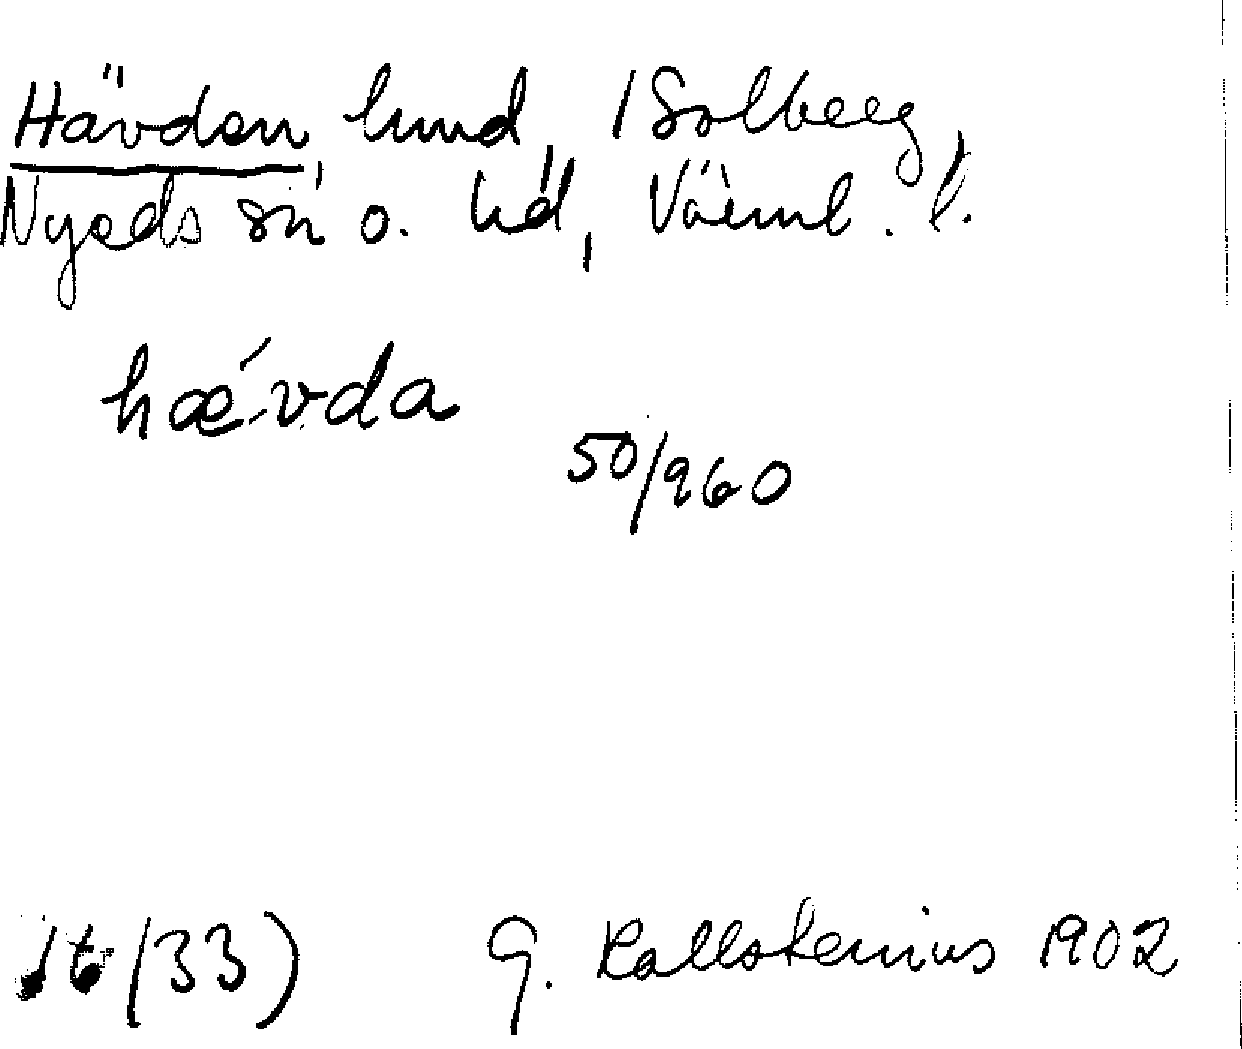 Hävden, lund, 1 Solberg,
Nyeds sn o. hd, Värml. l.
hǽvda
50/960
(33) G. Kallstenius 1902